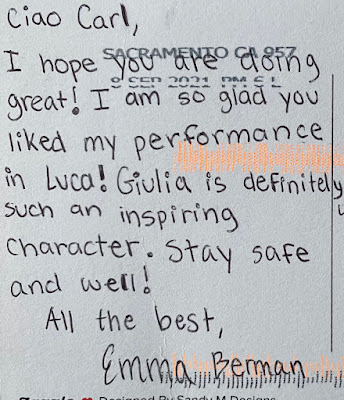 Ciao Carl,
SACRAMENTO CA 957
I hope you are doing
8 SEP 2021 PM 5 L
great! I am so glad you
liked my performance
in Luca! Giulia is definitely
such an inspiring
character. Stay safe
and well!
All the best,
Emma Berman
Designed By Sandy M Designs